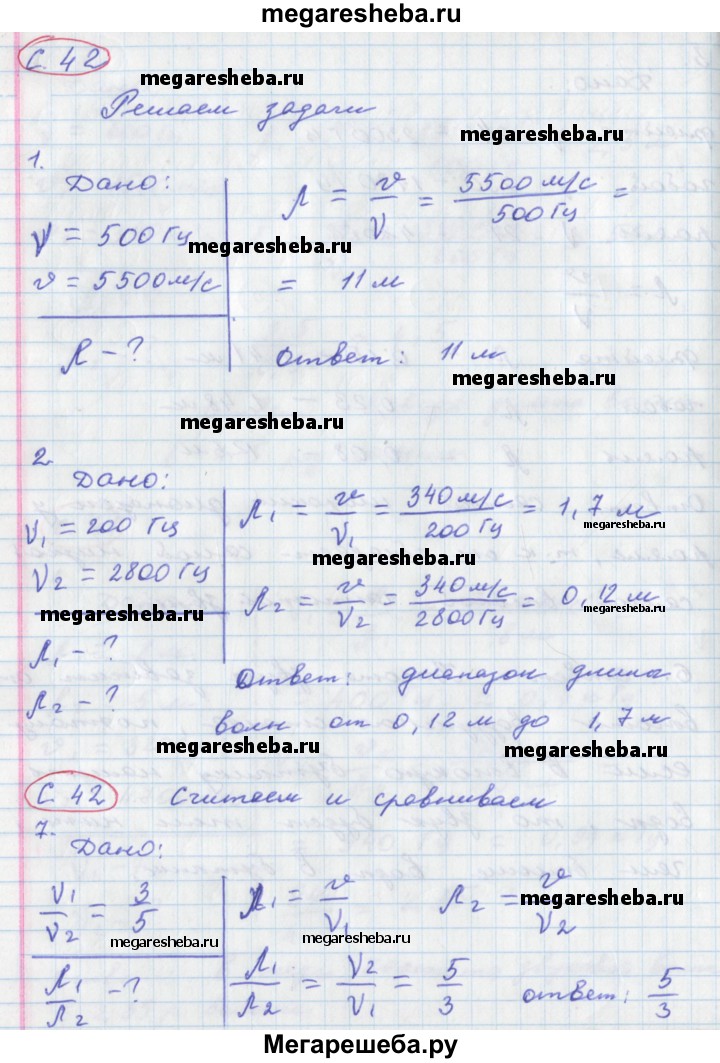 megaresheba.ru
С. 42
megaresheba.ru
Решаем задачи
megaresheba.ru
1.
Дано:
ν = 500 Гц
v = 5500 м/с
λ - ?
λ = v/ν = 5500 м/с / 500 Гц =
megaresheba.ru
= 11 м
Ответ: 11 м
megaresheba.ru
megaresheba.ru
2.
Дано:
ν1 = 200 Гц
ν2 = 2800 Гц
megaresheba.ru
λ1 - ?
λ2 - ?
λ1 = v/ν1 = 340 м/с / 200 Гц = 1,7 м
megaresheba.ru
megaresheba.ru
λ2 = v/ν2 = 340 м/с / 2800 Гц = 0,12 м
megaresheba.ru
Ответ: диапазон длина
волн от 0,12 м до 1,7 м
megaresheba.ru
megaresheba.ru
С. 42 Считаем и сравниваем
7.
Дано:
ν1/ν2 = 3/5
megaresheba.ru
λ1/λ2 - ?
λ1 = v/ν1 λ2 = v/ν2
megaresheba.ru
megaresheba.ru
λ1/λ2 = ν2/ν1 = 5/3 ответ: 5/3
Мегарешеба.ру